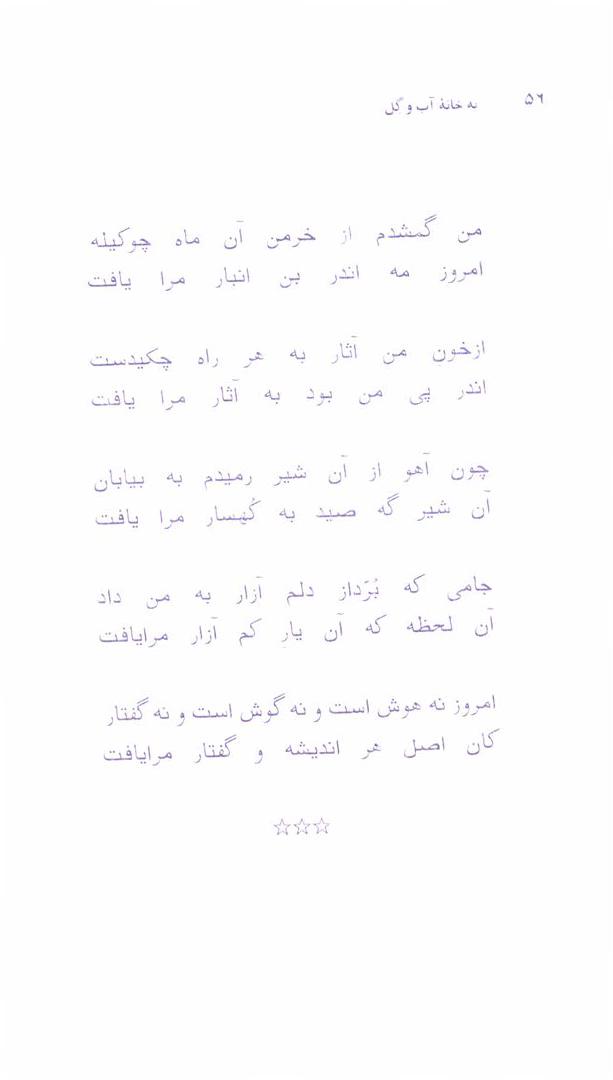 ۵۶ به خانهٔ آب و گِل
من گمشدم از خرمن آن ماه چوکیله
امروز مه اندر بن انبار مرا یافت
ازخونِ من آثار به هر راه چکیدست
اندر پی من بود به آثار مرا یافت
چون آهو از آن شیر رمیدم به بیابان
آن شیر گه صید به کُهسار مرا یافت
جامی که بُرّداز دلم آزار به من داد
آن لحظه که آن یارِ کم آزار مرایافت
امروز نه هوش است و نه گوش است و نه گفتار
کان اصل هر اندیشه و گفتار مرایافت
☆☆☆